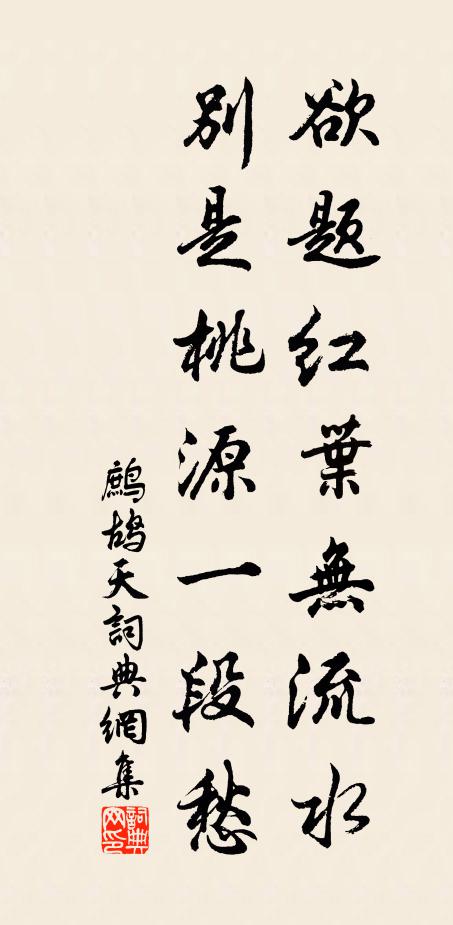 欲题红葉無流水
别是桃源一段愁
鷓鴣天詞典網集
詞典网印